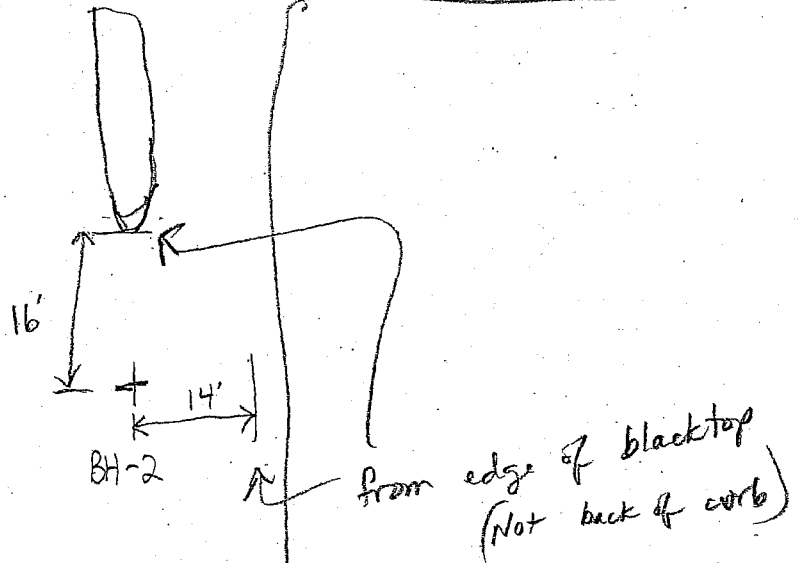 16'
14'
BH-2
from edge of blacktop
(Not back of curb)